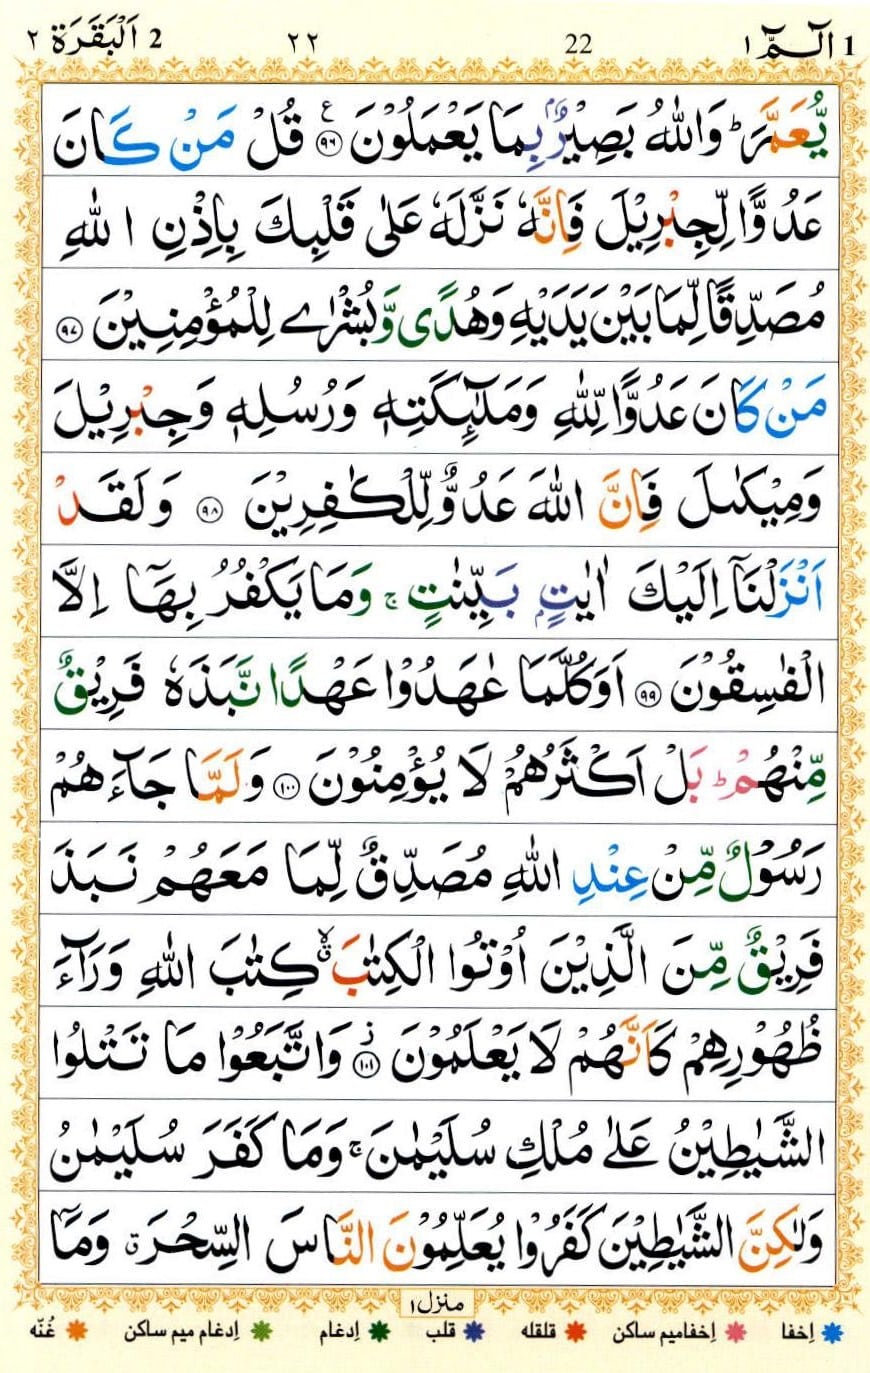 1 الٓمّٓ ۱ 22 ۲۲ 2 اَلْبَقَرَة ۲
يُّعَمَّرَ ؕ وَاللّٰهُ بَصِيْرٌۢ بِمَا يَعْمَلُوْنَ ﴿۹۶﴾ ع قُلْ مَنْ كَانَ
عَدُوًّا لِّجِبْرِيْلَ فَاِنَّهٗ نَزَّلَهٗ عَلٰى قَلْبِكَ بِاِذْنِ اللّٰهِ
مُصَدِّقًا لِّمَا بَيْنَ يَدَيْهِ وَهُدًى وَّبُشْرٰى لِلْمُؤْمِنِيْنَ ﴿۹۷﴾
مَنْ كَانَ عَدُوًّا لِّلّٰهِ وَمَلٰٓئِكَتِهٖ وَرُسُلِهٖ وَجِبْرِيْلَ
وَمِيْكٰىلَ فَاِنَّ اللّٰهَ عَدُوٌّ لِّلْكٰفِرِيْنَ ﴿۹۸﴾ وَلَقَدْ
اَنْزَلْنَاۤ اِلَيْكَ اٰيٰتٍۭ بَيِّنٰتٍ ۚ وَمَا يَكْفُرُ بِهَاۤ اِلَّا
الْفٰسِقُوْنَ ﴿۹۹﴾ اَوَكُلَّمَا عٰهَدُوْا عَهْدًا نَّبَذَهٗ فَرِيْقٌ
مِّنْهُمْ ؕ بَلْ اَكْثَرُهُمْ لَا يُؤْمِنُوْنَ ﴿۱۰۰﴾ وَلَمَّا جَآءَهُمْ
رَسُوْلٌ مِّنْ عِنْدِ اللّٰهِ مُصَدِّقٌ لِّمَا مَعَهُمْ نَبَذَ
فَرِيْقٌ مِّنَ الَّذِيْنَ اُوْتُوا الْكِتٰبَ ۙۗ كِتٰبَ اللّٰهِ وَرَآءَ
ظُهُوْرِهِمْ كَاَنَّهُمْ لَا يَعْلَمُوْنَ ﴿۱۰۱﴾ ز وَاتَّبَعُوْا مَا تَتْلُوا
الشَّيٰطِيْنُ عَلٰى مُلْكِ سُلَيْمٰنَ ۚ وَمَا كَفَرَ سُلَيْمٰنُ
وَلٰكِنَّ الشَّيٰطِيْنَ كَفَرُوْا يُعَلِّمُوْنَ النَّاسَ السِّحْرَ ق وَمَاۤ
منزل ۱
اِخفا اِخفامیم ساکن قلقله قلب اِدغام اِدغام میم ساکن غُنّه